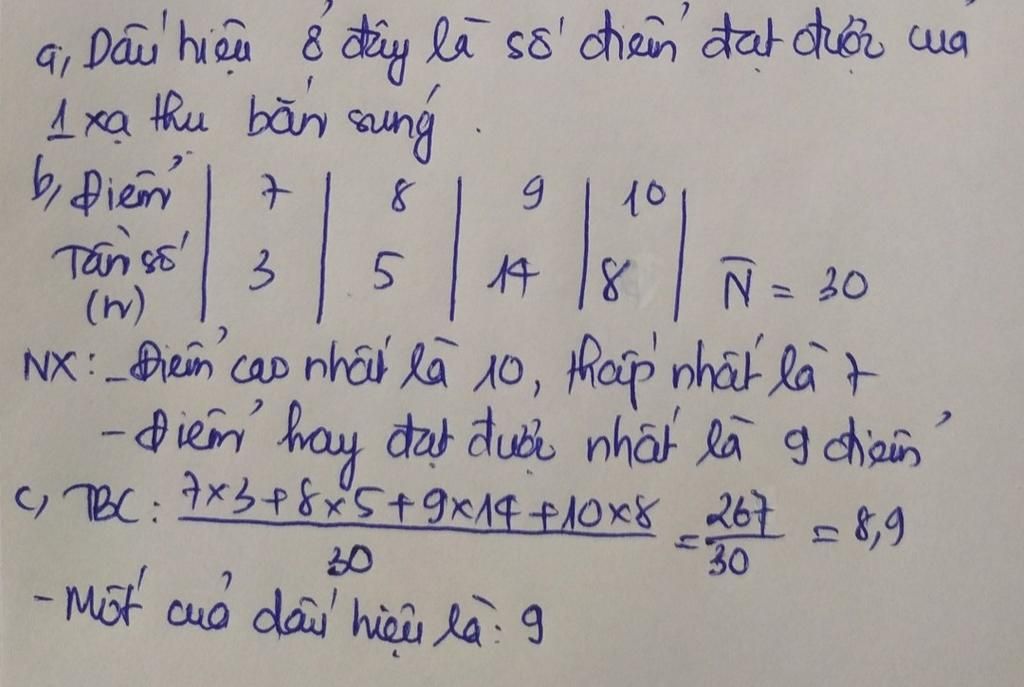 a, Dấu hiệu ở đây là số điểm đạt được của
1 xạ thủ bắn súng.
b, Điểm | 7 | 8 | 9 | 10 |
Tần số | 3 | 5 | 14 | 8 | N̄ = 30
(n)
NX: - Điểm cao nhất là 10, thấp nhất là 7
- Điểm hay đạt được nhất là 9 điểm
c, TBC: 7x3+8x5+9x14+10x8 / 30 = 267 / 30 = 8,9
- Mốt của dấu hiệu là: 9